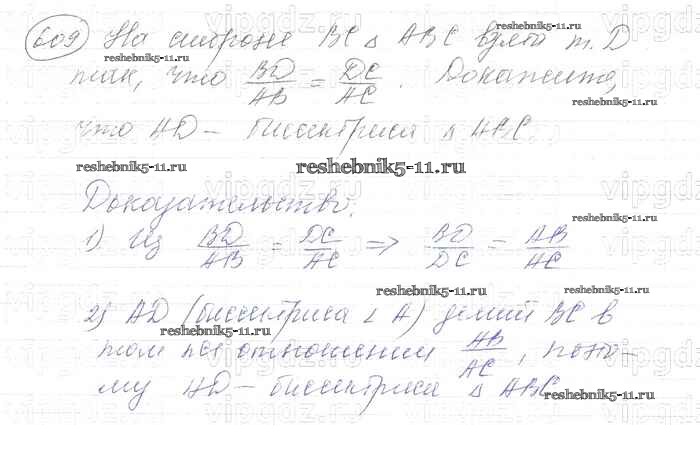 609 На стороне BC △ ABC взята т. D
так, что BD/AB = DC/AC. Докажите,
что AD — биссектриса △ ABC.
Доказательство:
1) Из BD/AB = DC/AC ⇒ BD/DC = AB/AC
2) AD (биссектриса ∠ A) делит BC в
том же отношении AB/AC, поэто-
му AD — биссектриса △ ABC
reshebnik5-11.ru
reshebnik5-11.ru
reshebnik5-11.ru
reshebnik5-11.ru
reshebnik5-11.ru
reshebnik5-11.ru
reshebnik5-11.ru
reshebnik5-11.ru
reshebnik5-11.ru
reshebnik5-11.ru
reshebnik5-11.ru